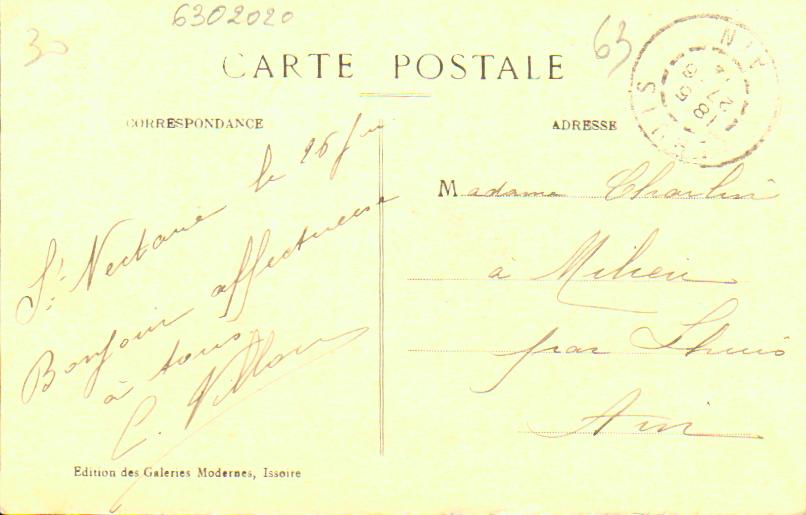 30
6302020
63
CARTE POSTALE
CORRESPONDANCE
ADRESSE
St Nectaire le 26 Juin
Bonjour affectueuse
à tous
C. Villon
Madame Charlin
à Milieu
par Lhuis
Ain
LHUIS
AIN
Edition des Galeries Modernes, Issoire